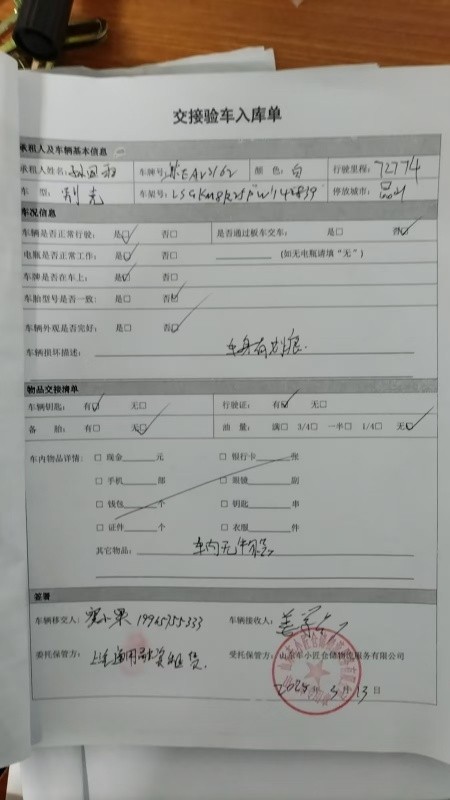 交接验车入库单
承租人及车辆基本信息
承租人姓名: 车牌号: 颜 色: 白 行驶里程: 72774
车 型: 别克 车架号: 停放城市: 昆山
车况信息
车辆是否正常行驶: 是☑ 否□ 是否通过板车交车: 是□ 否☑
电瓶是否正常工作: 是☑ 否□ (如无电瓶请填“无”)
车牌是否在车上: 是☑ 否□
车胎型号是否一致: 是□ 否☑
车辆外观是否完好: 是□ 否☑
车辆损坏描述: 车身有划痕.
物品交接清单
车辆钥匙: 有☑ 无□ 行驶证: 有☑ 无□
备 胎: 有□ 无☑ 油 量: 满□ 3/4□ 一半□ 1/4□ 无☑
车内物品详情: □ 现金____元 □ 银行卡____张
□ 手机____部 □ 眼镜____副
□ 钱包____个 □ 钥匙____串
□ 证件____个 □ 衣服____件
其它物品: 车内无
签署
车辆移交人: 19965755333 车辆接收人:
委托保管方: 上汽通用融资租赁. 受托保管方: 山东车小匠仓储物流服务有限公司
年 3 月 13 日